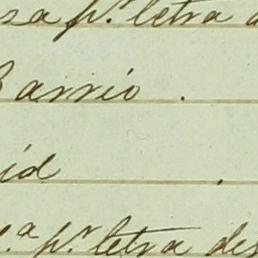 sa p.ʳ letra d
Barrio .
id .
.ª p.ʳ letra des